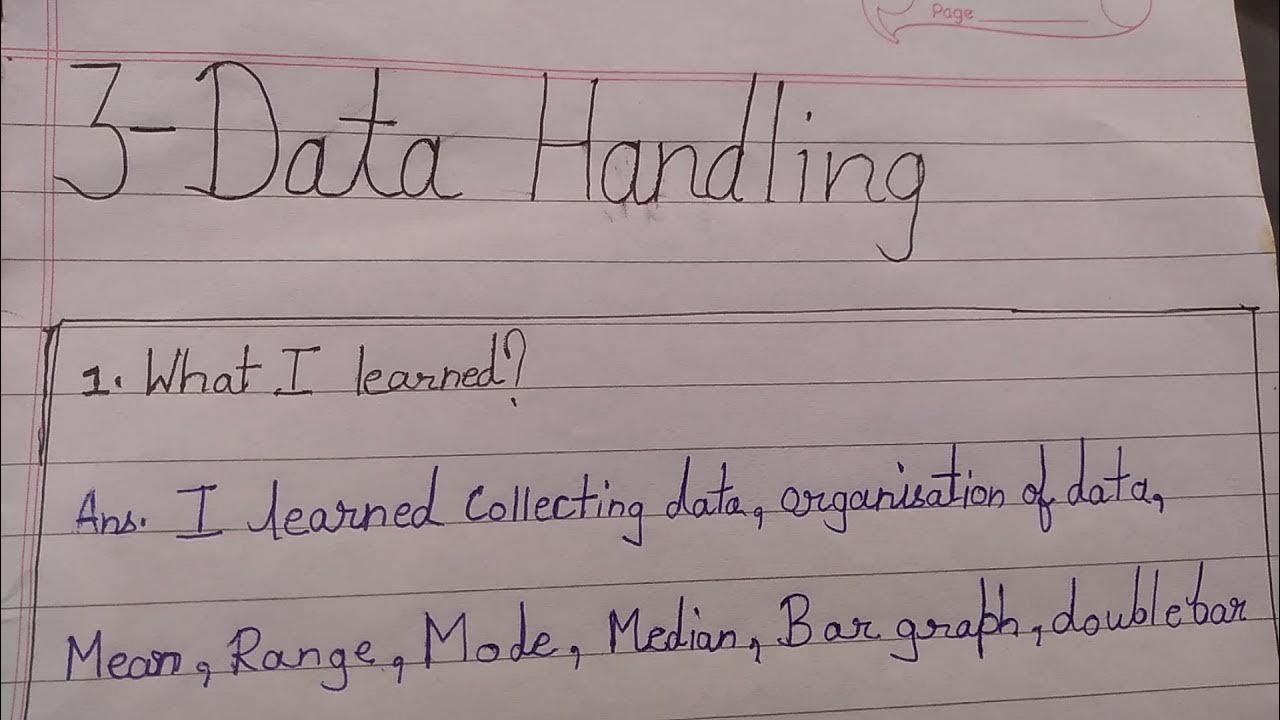 Page
3-Data Handling
1. What I learned?
Ans. I learned collecting data, organisation of data,
Mean, Range, Mode, Median, Bar graph, double bar